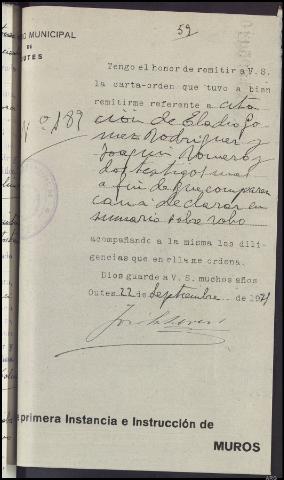 59
O MUNICIPAL
DE
OUTES
Nº 189
Tengo el honor de remitir a V. S.
la carta-orden que tuvo a bien
remitirme referente a cita
ción de Eladio Go
mez Rodriguez y
Joaquin Romero y
dos testigos mas
a fin de que comparez
can a declarar en
sumario sobre robo
acompañando a la misma las dili-
gencias que en ella me ordena.
Dios guarde a V. S. muchos años
Outes 22 de Septiembre de 19
primera Instancia e Instrucción de
MUROS